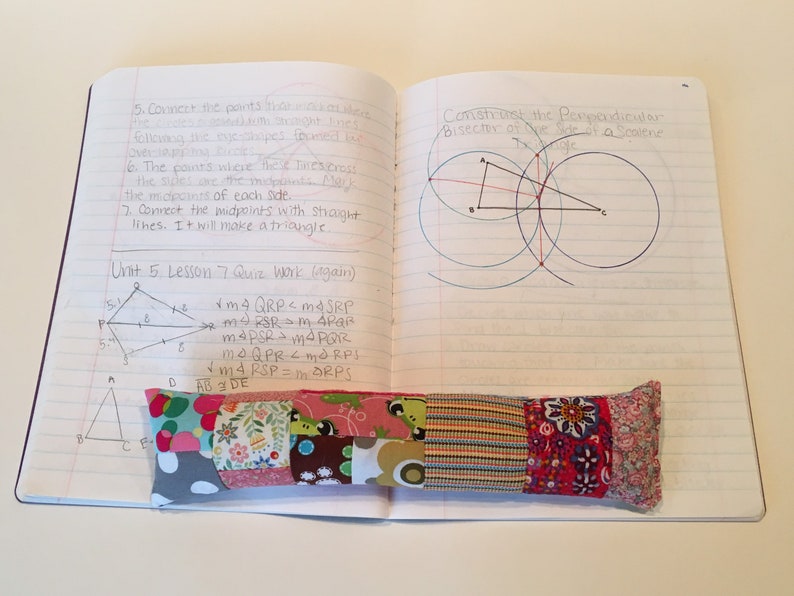 5. Connect the points that marked where
the circles crossed with straight lines
following the eye-shapes formed by
overlapping circles.
6. The points where these lines cross
the sides are the midpoints. Mark
the midpoints of each side.
7. Connect the midpoints with straight
lines. It will make a triangle.
Unit 5 Lesson 7 Quiz Work (again)
Q
5.1
8
P
8
R
5.4
S
8
✓ m∢ QRP < m∢ SRP
m∢ RSR > m∢ PQR
m∢ PSR > m∢ PQR
m∢ QPR < m∢ RPS
✓ m∢ RSP = m∢ RPS
A
B
C
D
E
AB ≅ DE
Construct the Perpendicular
Bisector of One Side of a Scalene
Triangle
A
B
C